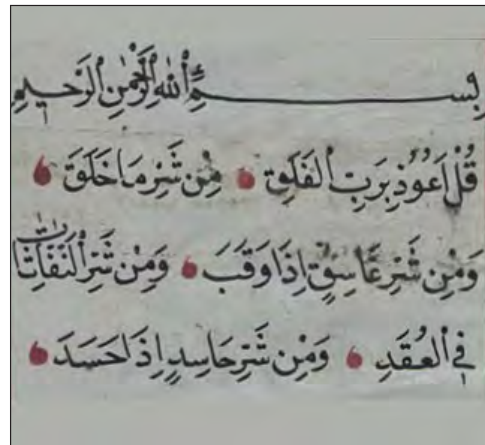 بِسْمِ ٱللَّهِ ٱلرَّحْمَٰنِ ٱلرَّحِيمِ
قُلْ اَعُوذُ بِرَبِّ ٱلْفَلَقِ مِنْ شَرِّ مَا خَلَقَ
وَمِنْ شَرِّ غَاسِقٍ اِذَا وَقَبَ وَمِنْ شَرِّ ٱلنَّفَّاثَاتِ
فِي ٱلْعُقَدِ وَمِنْ شَرِّ حَاسِدٍ اِذَا حَسَدَ